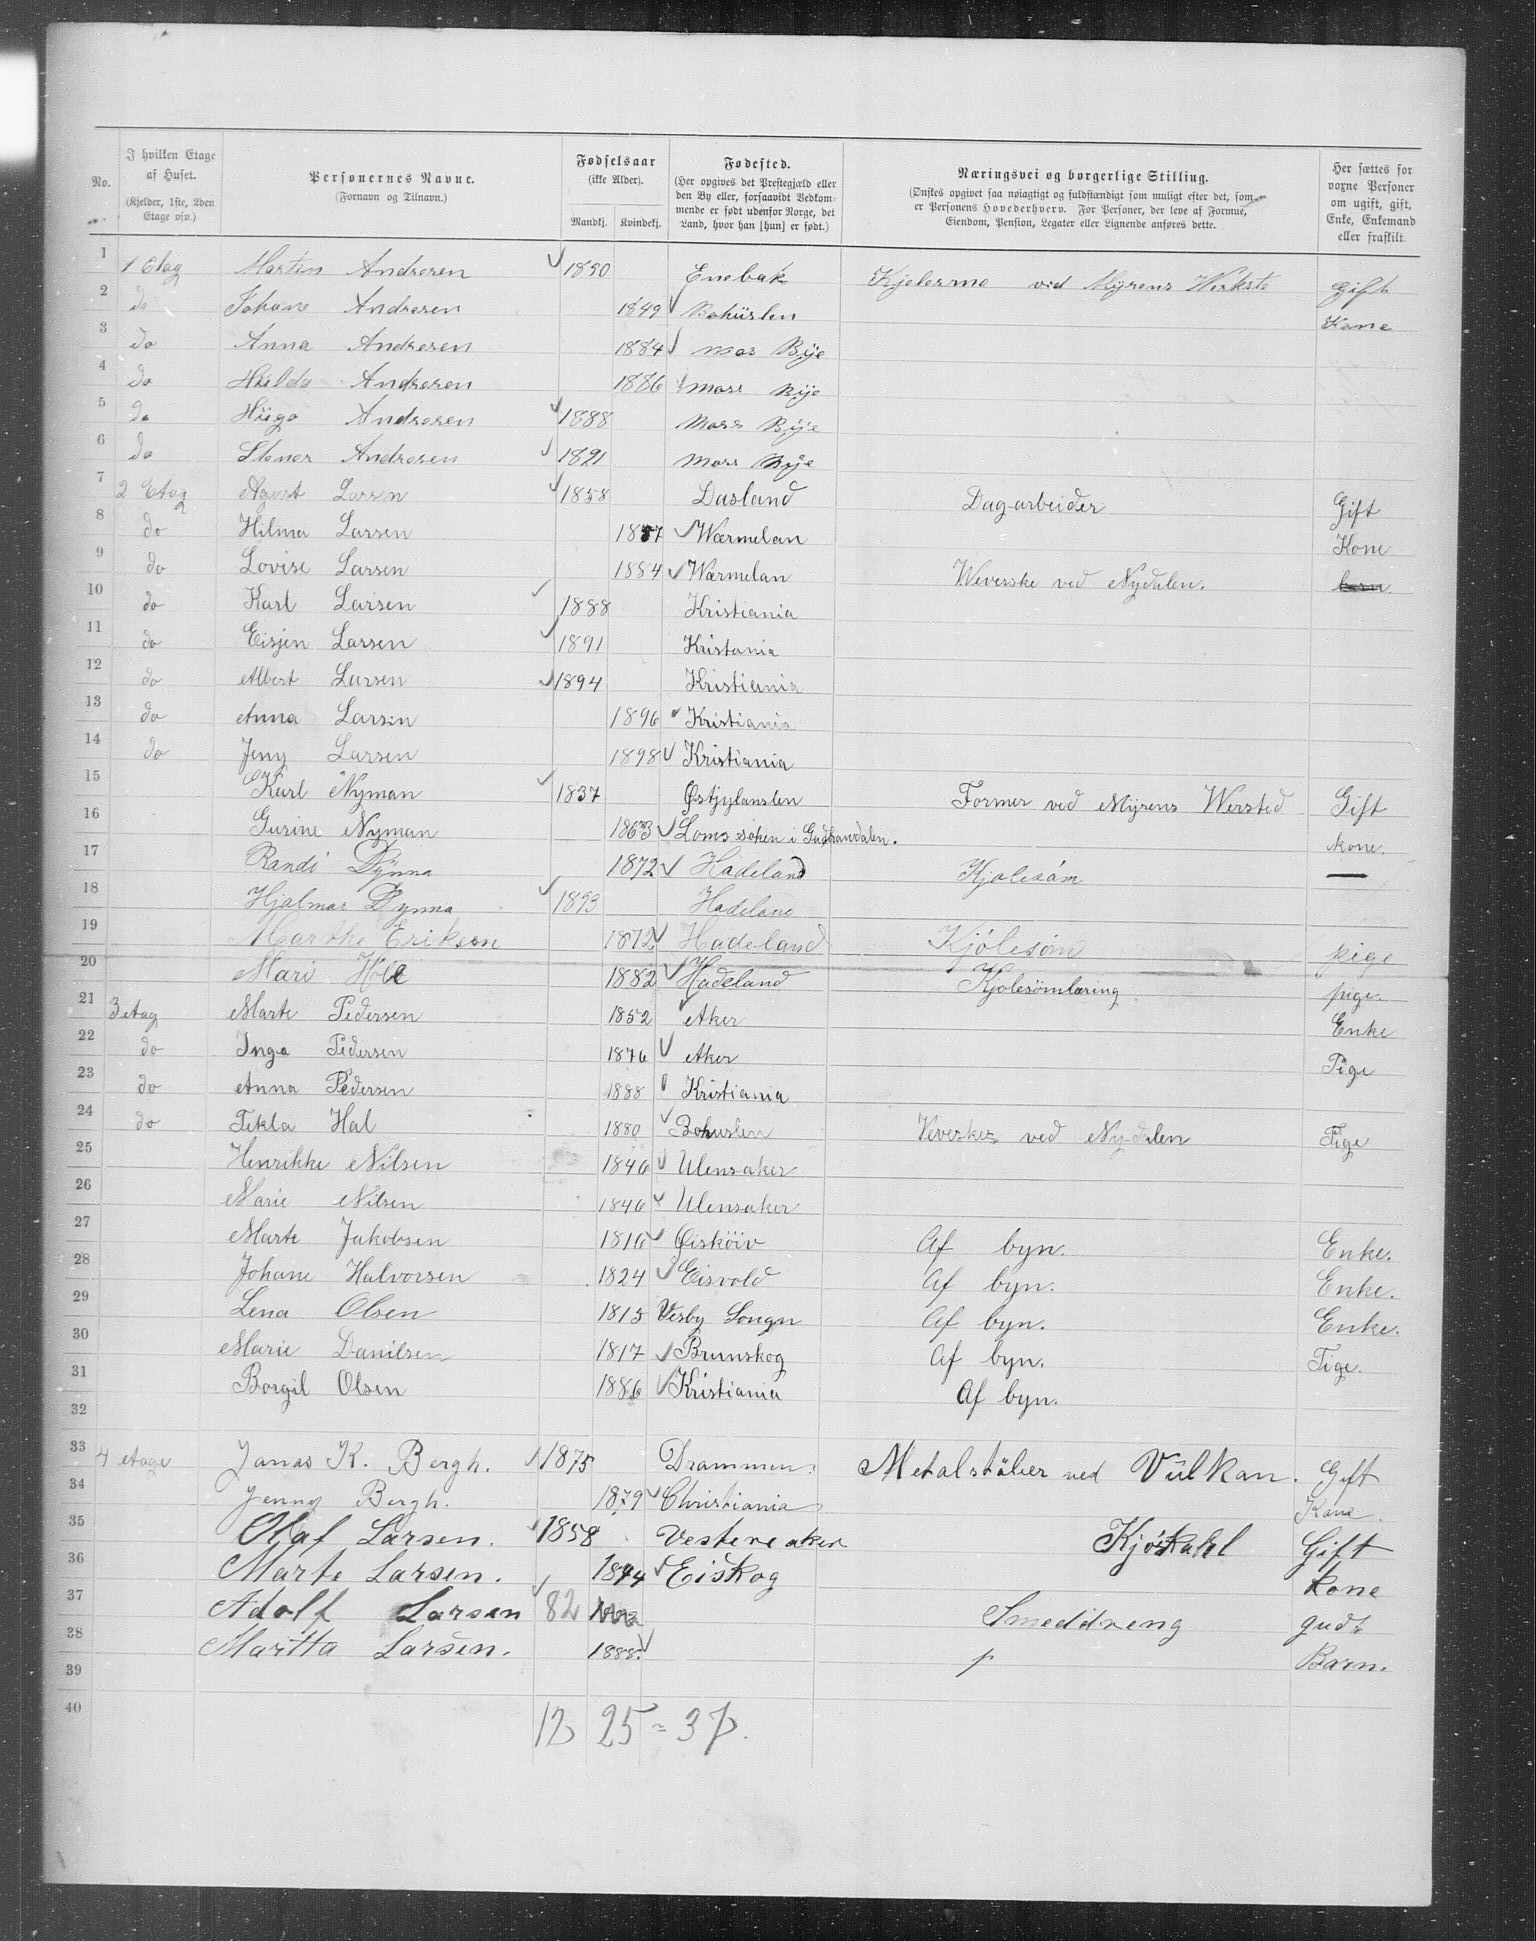 No. I hvilken Etage af Huset. (Kjelder, 1ste, 2den Etage osv.) Personernes Navne. (Fornavn og Tilnavn.) Fødselsaar (ikke Alder). Mandkj. Kvindekj. Fødested. (Her opgives det Prestegjæld eller den By eller, forsaavidt Vedkommende er født udenfor Norge, det Land, hvor han [hun] er født.) Næringsvei og borgerlige Stilling. (Ønskes opgivet saa nøiagtigt og fuldstændigt som muligt efter det, som er Personens Hovederhverv. For Personer, der leve af Formue, Eiendom, Pension, Legater eller Lignende anføres dette. Her sættes for vorne Personer om ugift, gift, Enke, Enkemand eller fraskilt.
1 1 Etag Martin Andresen 1850 Enebak Kjelesmo ved Myrens Verkste gift
2 do Johane Andresen 1849 Bohüslen Kone
3 do Anna Andresen 1884 Mos Bÿe
4 do Hülda Andresen 1886 Moss Bÿe
5 do Hügo Andresen 1888 Moss Bÿe
6 do Andresen 1891 Moss Bÿe
7 2 Etag Agust Larsen 1858 Dasland Dagarbeider Gift
8 do Hilma Larsen 1857 Wærmelan Kone
9 do Lovise Larsen 1884 Wærmelan Weverske ved Nydalen. barn
10 do Karl Larsen 1888 Kristiania
11 do Eisjen Larsen 1891 Kristania
12 do Albert Larsen 1894 Kristiania
13 do Anna Larsen 1896 Kristiania
14 do Jeny Larsen 1898 Kristiania
15 Karl Nyman 1837 Østjylanslen Former ved Myrens Wersted Gift
16 Gurine Nyman 1863 Loms soken i Gudbrandalen. kone.
17 Randi Dÿnna 1872 Hadeland Kjolesöm —
18 Hjalmar Dynna 1893 Hadeland
19 Marthe Erikson 1872 Hadeland Kjólesöm pige
20 Mari Hole 1882 Hadeland Kjolesömlæring pige
21 3 etag Marte Pedersen 1852 Aker Enke
22 do Inga Pedersen 1876 Aker Pige
23 do Anna Pedersen 1888 Kristiania
24 do Tekla Hal 1880 Bohuslen Veverske ved Nydalen Pige
25 Henrikke Nilsen 1846 Ulensaker
26 Marie Nilsen 1846 Ulensaker
27 Marte Jakobsen 1816 Øisköiv Af byn. Enke.
28 Johane Halvorsen 1824 Eisvold Af byn. Enke.
29 Lena Olsen 1815 Vesby Songn Af byn. Enke.
30 Marie Danilsen 1817 Brunskog Af byn. Pige.
31 Borgil Olsen 1886 Kristiania Af byn.
32
33 4 etage Janas K. Bergh. 1875 Drammen. Metalstøber ved Vülkan. Gift
34 Jenny Bergh. 1879 Christiania Kone.
35 Olaf Larsen. 1858 Vestere aker Gift
36 Marte Larsen. 1844 Eiskog kone
37 Adolf Larsen 82 Smeddreng
38 Martta Larsen. 1888. Barn.
39
40
12 25 = 37.